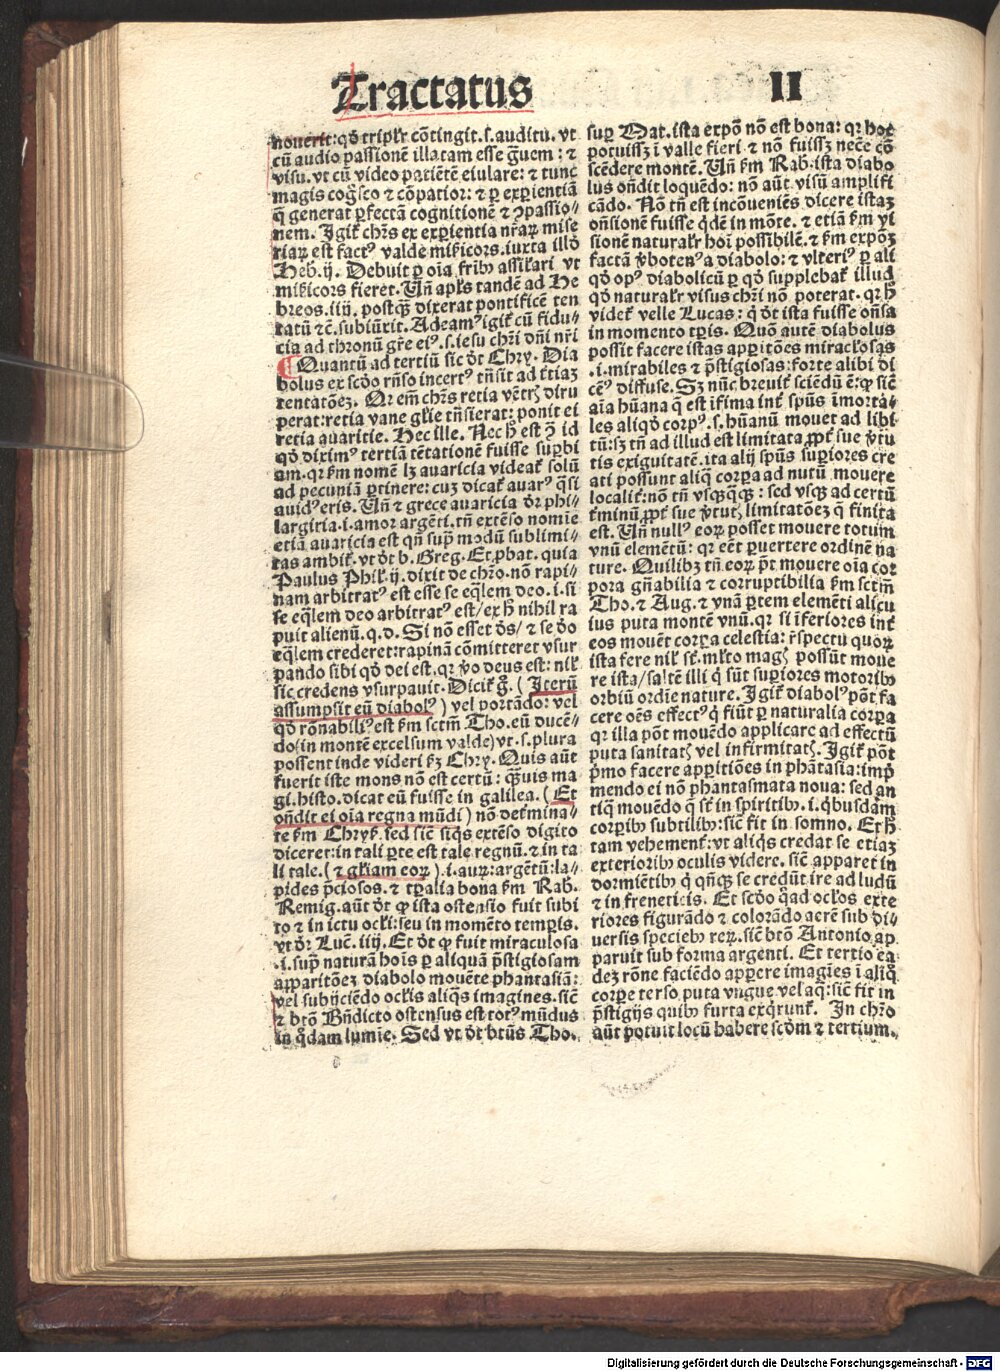 Tractatus II
nouerit: qd̄ triplr̄ cōtingit. ſ. auditu. vt
cū audio paſſionē illatam eſſe g̃uem: ⁊
viſu. vt cū video patiētē eiulare: ⁊ tunc
magis cog̃ſco ⁊ cōpatior: ⁊ ꝑ experientiā
q̄ generat ꝑfectā cognitionē ⁊ ꝯpaſſio⸗
nem. Igit̄ chr̄s ex experientia nr̄aꝝ miſe
riaꝝ eſt fact⁹ valde mīcors. iuxta illd̄
Heb. ij. Debuit ꝑ oīa frīb⁹ aſſil̄ari vt
mīcors fieret. Vn̄ apl̄s tandē ad He
breos. iiij. poſtq̄ꝫ dixerat pontificē ten
tatū ⁊c̄. ſubiūxit. Adeam⁹ igit̄ cū fidu⸗
cia ad thronū gr̄e ei⁹. ſ. ieſu chr̄i dn̄i nr̄i
¶ Quantū ad tertiū ſic dt̄ Chry. Dia
bolus ex ſcd̄o rn̄ſo incert⁹ tn̄ſit ad t̄tiaꝫ
tentatōeꝫ. Qr em̄ chr̄s retia vētr̄ꝫ diru
perat: retia vane gl̄ie tn̄ſierat: ponit ei
retia auaritie. Hec ille. Nec h̄ eſt ꝯ̄ id
qd̄ dixim⁹ tertiā tētationē fuiſſe ſuꝑbi
am. qꝛ ẜm nomē lꝫ auaricia videat̄ ſolū
ad pecuniā ꝑtinere: cuꝫ dicat̄ auar⁹ q̄ſi
auid⁹ eris. Vn̄ ⁊ grece auaricia dr̄ phi⸗
largiria. i. amor argēti. tn̄ extēſo nomīe
etiā auaricia eſt qn̄ ſupꝰ modū ſublimi⸗
tas ambit̄. vt dt̄ b. Greg. Et ꝓbat. quia
Paulus Phil̄. ij. dixit de chr̄o. nō rapi⸗
nam arbitrat⁹ eſt eſſe ſe eq̄lem deo. i. ſi
ſe eq̄lem deo arbitrat⁹ eſt/ ex h̄ nihil ra
puit alienū. q. d. Si nō eſſet dꝰs/ ⁊ ſe do
eq̄lem crederet: rapinā cōmitteret vſur
pando ſibi qd̄ dei eſt. qꝛ ꝟo deus eſt: nil̄
ſic credens vſurpauit. Dicit̄ g̊. (Iterū
aſſumpſit eū diabol⁹) vel portādo: vel
qd̄ rōnabili⁹ eſt ẜm ſctm̄ Tho. eū ducē⸗
do (in montē excelſum valde) vt. ſ. plura
poſſent inde videri ẜꝫ Chry. Quis aūt
fuerit iſte mons nō eſt certū: q̄ꝫuis ma
gi. hiſto. dicat eū fuiſſe in galilea. (Et
oñdit ei oīa regna mūdi) nō det̄mina⸗
te ẜm Chryſ. ſed ſic̄ ſiq̄s extēſo digito
diceret: in tali ꝑte eſt tale regnū. ⁊ in ta
li tale. (⁊ gl̄iam eoꝝ) .i. auꝝ: argētū: la⸗
pides p̄cioſos. ⁊ tꝑalia bona ẜm Rab.
Remig. aūt dt̄ ꝙ iſta oſtenſio fuit ſubi
to ⁊ in ictu ocl̄i: ſeu in momēto temp̄is.
vt dr̄ Luc̄. iiij. Et dt̄ ꝙ fuit miraculoſa
.i. ſupꝰ naturā hoīs ꝑ aliquā p̄ſtigioſam
apparitōeꝫ diabolo mouēte phantaſiā:
vel ſubijciēdo ocl̄is aliq̄s imagines. ſic̄
⁊ btō Bn̄dicto oſtenſus eſt tot⁹ mūdus
in q̄dam lumīe. Sed vt dt̄ btūs Tho.
ſuꝑ Mat. iſta expō nō eſt bona: qꝛ hoc
potuiſſꝫ ī valle fieri ⁊ nō fuiſſꝫ nec̄e cō
ſcēdere montē. Vn̄ ẜm Rab. iſta diabo
lus oñdit loquēdo: nō aūt viſū amplifi
cādo. Nō tn̄ eſt incōueniēs dicere iſtaꝫ
onſionē fuiſſe q̄dē in mōte. ⁊ etiā ẜm vi
ſionē naturalr̄ hoī poſſibilē. ⁊ ẜm expōꝫ
factā ꝟboten⁹ a diabolo: ⁊ vlteri⁹ ꝑ ali
qd̄ op⁹ diabolicū ꝑ qd̄ ſupplebat̄ illud
qd̄ naturalr̄ viſus chr̄i nō poterat. qꝛ h̄
videt̄ velle Lucas: q̄ dt̄ iſta fuiſſe oñſa
in momento tp̄is. Quō autē diabolus
poſſit facere iſtas apꝑitōes miracloſas
.i. mirabiles ⁊ p̄ſtigioſas: forte alibi di
cet⁹ diffuſe. Sꝫ nūc breuit̄ ſciēdū ē: ꝙ ſic̄
aīa hūana q̄ eſt īfima int̄ ſpūs īmorta⸗
les aliqd̄ corp⁹. ſ. hūanū mouet ad libi
tū: ſꝫ tn̄ ad illud eſt limitata ꝓpt̄ ſue ꝟtu
tis exiguitatē. ita alij ſpūs ſuꝑiores cre
ati poſſunt aliq̄ corꝑa ad nutū mouere
localit̄: nō tn̄ vſq̄q̄ꝫ: ſed vſqꝫ ad certū
t̄minū ꝓpt̄ ſue ꝟtut̄ꝫ limitatōeꝫ q̄ finita
eſt. Vn̄ null⁹ eoꝝ poſſet mouere totum
vnū elemētū: qꝛ eēt ꝑuertere ordinē na
ture. Quilibꝫ tn̄ eoꝝ pt̄ mouere oīa cor
pora gn̄abilia ⁊ corruptibilia ẜm ſctm̄
Tho. ⁊ Aug. ⁊ vnā ꝑtem elemēti alicu
ius puta montē vnū. qꝛ ſi īferiores int̄
eos mouēt corꝑa celeſtia: rſpectu quoꝝ
iſta fere nil̄ ſt̄. ml̄to mag̃ poſſūt moue
re iſta/ ſaltē illi q̄ ſūt ſuꝑiores motorib⁹
orbiū ordīe nature. Igit̄ diabol⁹ pōt fa
cere oēs effect⁹ q̄ fiūt ꝑ naturalia corꝑa
qꝛ illa pōt mouēdo applicare ad effectū
puta ſanitat̄ꝫ vel infirmitat̄ꝫ. Igit̄ pōt
p̄mo facere apꝑitiōes in phātaſia: imp̄
mendo ei nō phantaſmata noua: ſed an
tiq̄ mouēdo q̄ ſt̄ in ſpiritib⁹. i. q̄buſdam
corꝑib⁹ ſubtilib⁹: ſic̄ fit in ſomno. Et h̄
tam vehement̄: vt aliq̄s credat ſe etiaꝫ
exteriorib⁹ oculis videre. ſic̄ apparet in
dormiētib⁹ q̄ qn̄qꝫ ſe credūt ire ad ludū
⁊ in freneticis. Et ſcd̄o q̄ad ocl̄os exte
riores figurādo ⁊ colorādo aerē ſub di⸗
uerſis ſpecieb⁹ reꝝ. ſic̄ btō Antonio ap
paruit ſub forma argenti. Et tertio ea
deꝫ rōne faciēdo apꝑere imagīes ī aliq̄
corꝑe terſo puta vngue vel aq̄: ſic̄ fit in
p̄ſtigijs quib⁹ furta exq̄runt̄. In chr̄o
aūt potuit locū habere ſcd̄m ⁊ tertium.
Digitalisierung gefördert durch die Deutsche Forschungsgemeinschaft - DFG